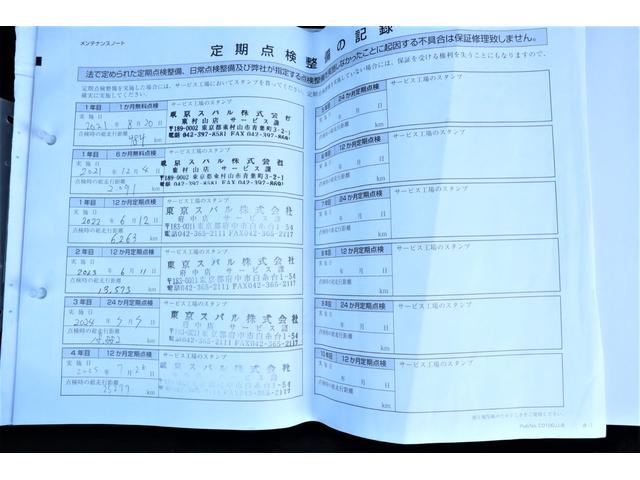 メンテナンスノート
定期点検整備の記録
法で定められた定期点検整備、日常点検整備及び弊社が指定する点検整備を実施しなかったことに起因する不具合は保証修理致しません。
定期点検整備を実施した場合には、サービス工場においてスタンプを買ってください。
確実に実施してください。
1年目 1か月無料点検 サービス工場のスタンプ
実施日
2021年 8月20日
点検時の総走行距離
484 km
東京スバル株式会社
東村山店 サービス課
〒189-0002 東京都東村山市青葉町3-2-1
電話 042-397-8581 FAX 042-397-8691
1年目 6か月無料点検 サービス工場のスタンプ
実施日
2021年 12月4日
点検時の総走行距離
2,091 km
東京スバル株式会社
東村山店 サービス課
〒189-0002 東京都東村山市青葉町3-2-1
電話 042-397-8581 FAX 042-397-8691
1年目 12か月定期点検 サービス工場のスタンプ
実施日
2022年 6月12日
点検時の総走行距離
6,263 km
東京スバル株式会社
府中店 サービス課
〒183-0011 東京都府中市白糸台1-54
042-365-2111 FAX 042-365-2117
2年目 12か月定期点検 サービス工場のスタンプ
実施日
2023年 6月11日
点検時の総走行距離
13,573 km
東京スバル株式会社
府中店 サービス課
〒183-0011 東京都府中市白糸台1-54
042-365-2111 FAX 042-365-2117
3年目 24か月定期点検 サービス工場のスタンプ
実施日
2024年 月 日
点検時の総走行距離
km
東京スバル株式会社
府中店 サービス課
〒183-0011 東京都府中市白糸台1-54
042-365-2111 FAX 042-365-2117
4年目 12か月定期点検 サービス工場のスタンプ
実施日
2025年 7月26日
点検時の総走行距離
km
東京スバル株式会社
24か月定期点検 サービス工場のスタンプ
年 月 日
km
12か月定期点検 サービス工場のスタンプ
年 月 日
点検時の総走行距離
km
24か月定期点検 サービス工場のスタンプ
実施日
年 月 日
点検時の総走行距離
km
12か月定期点検 サービス工場のスタンプ
実施日
年 月 日
点検時の総走行距離
km
9年目 24か月定期点検 サービス工場のスタンプ
実施日
年 月 日
点検時の総走行距離
km
10年目 12か月定期点検 サービス工場のスタンプ
実施日
年 月 日
点検時の総走行距離
km